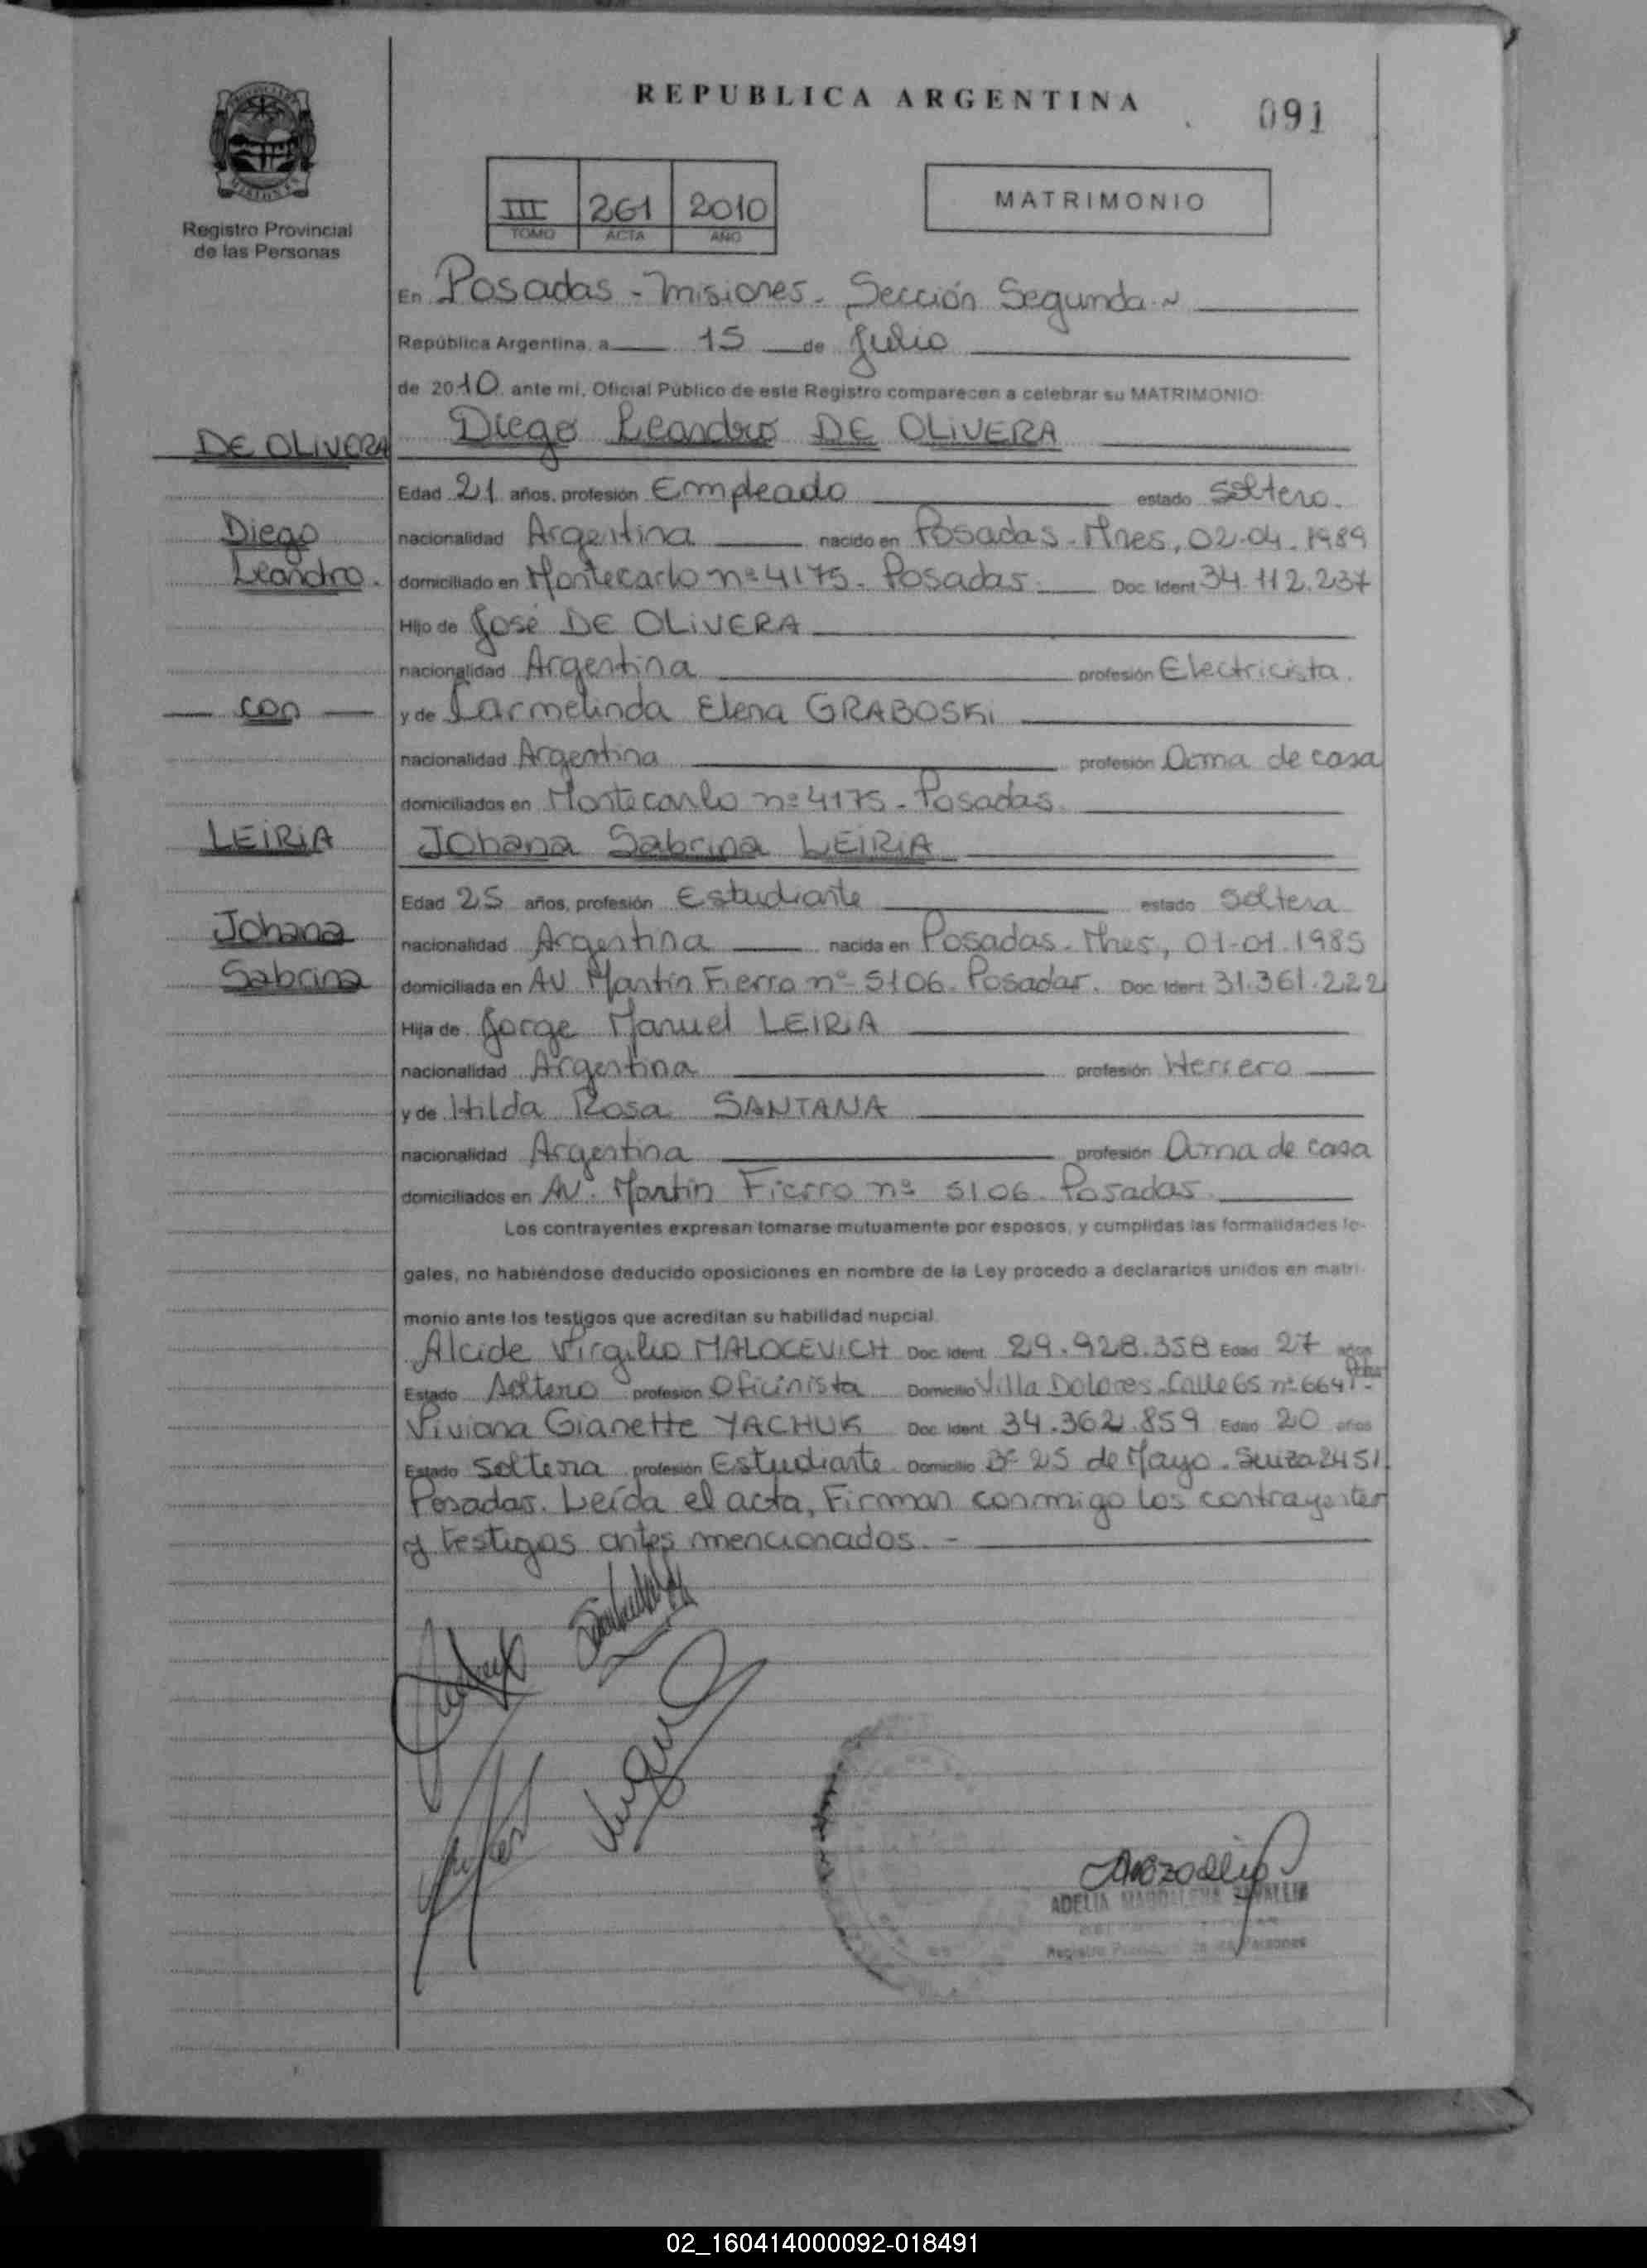 REPUBLICA ARGENTINA
091
MATRIMONIO
III 261 2010
TOMO ACTA AÑO
Registro Provincial
de las Personas
En Posadas - Misiones - Sección Segunda ~
República Argentina, a 15 de Julio
de 2010 ante mí, Oficial Público de este Registro comparecen a celebrar su MATRIMONIO:
DE OLIVERA
Diego Leandro DE OLIVERA
Edad 21 años, profesión Empleado estado soltero.
Diego
nacionalidad Argentina nacido en Posadas - Mnes, 02-04-1989
Leandro.
domiciliado en Montecarlo nº 4175 - Posadas. Doc. Ident 34.112.237
Hijo de José DE OLIVERA
nacionalidad Argentina profesión Electricista.
con
y de Carmelinda Elena GRABOSKI
nacionalidad Argentina profesión Ama de casa
domiciliados en Montecarlo nº 4175 - Posadas.
LEIRIA
Johana Sabrina LEIRIA
Edad 25 años, profesión Estudiante estado Soltera
Johana
nacionalidad Argentina nacida en Posadas - Mnes, 01-01-1985
Sabrina
domiciliada en AV. Martín Fierro nº 5106 - Posadas. Doc. Ident. 31.361.222
Hija de Jorge Manuel LEIRIA
nacionalidad Argentina profesión Herrero
y de Hilda Rosa SANTANA
nacionalidad Argentina profesión Ama de casa
domiciliados en AV. Martín Fierro nº 5106 - Posadas.
Los contrayentes expresan tomarse mutuamente por esposos, y cumplidas las formalidades le-
gales, no habiéndose deducido oposiciones en nombre de la Ley procedo a declararlos unidos en matri-
monio ante los testigos que acreditan su habilidad nupcial.
Alcide Virgilio MALOCEVICH Doc. Ident. 29.928.358 Edad 27 años
Estado Soltero profesión Oficinista Domicilio Villa Dolores - Calle 65 nº 6641 -
Viviana Gianette YACHUK Doc. Ident. 34.362.859 Edad 20 años
Estado Soltera profesión Estudiante Domicilio Bº 25 de Mayo - Suiza 2451
Posadas. Leída el acta, Firman conmigo los contrayentes
y testigos antes mencionados. -
ADELIA MAGDALENA
Registro de las Personas
02_160414000092-018491